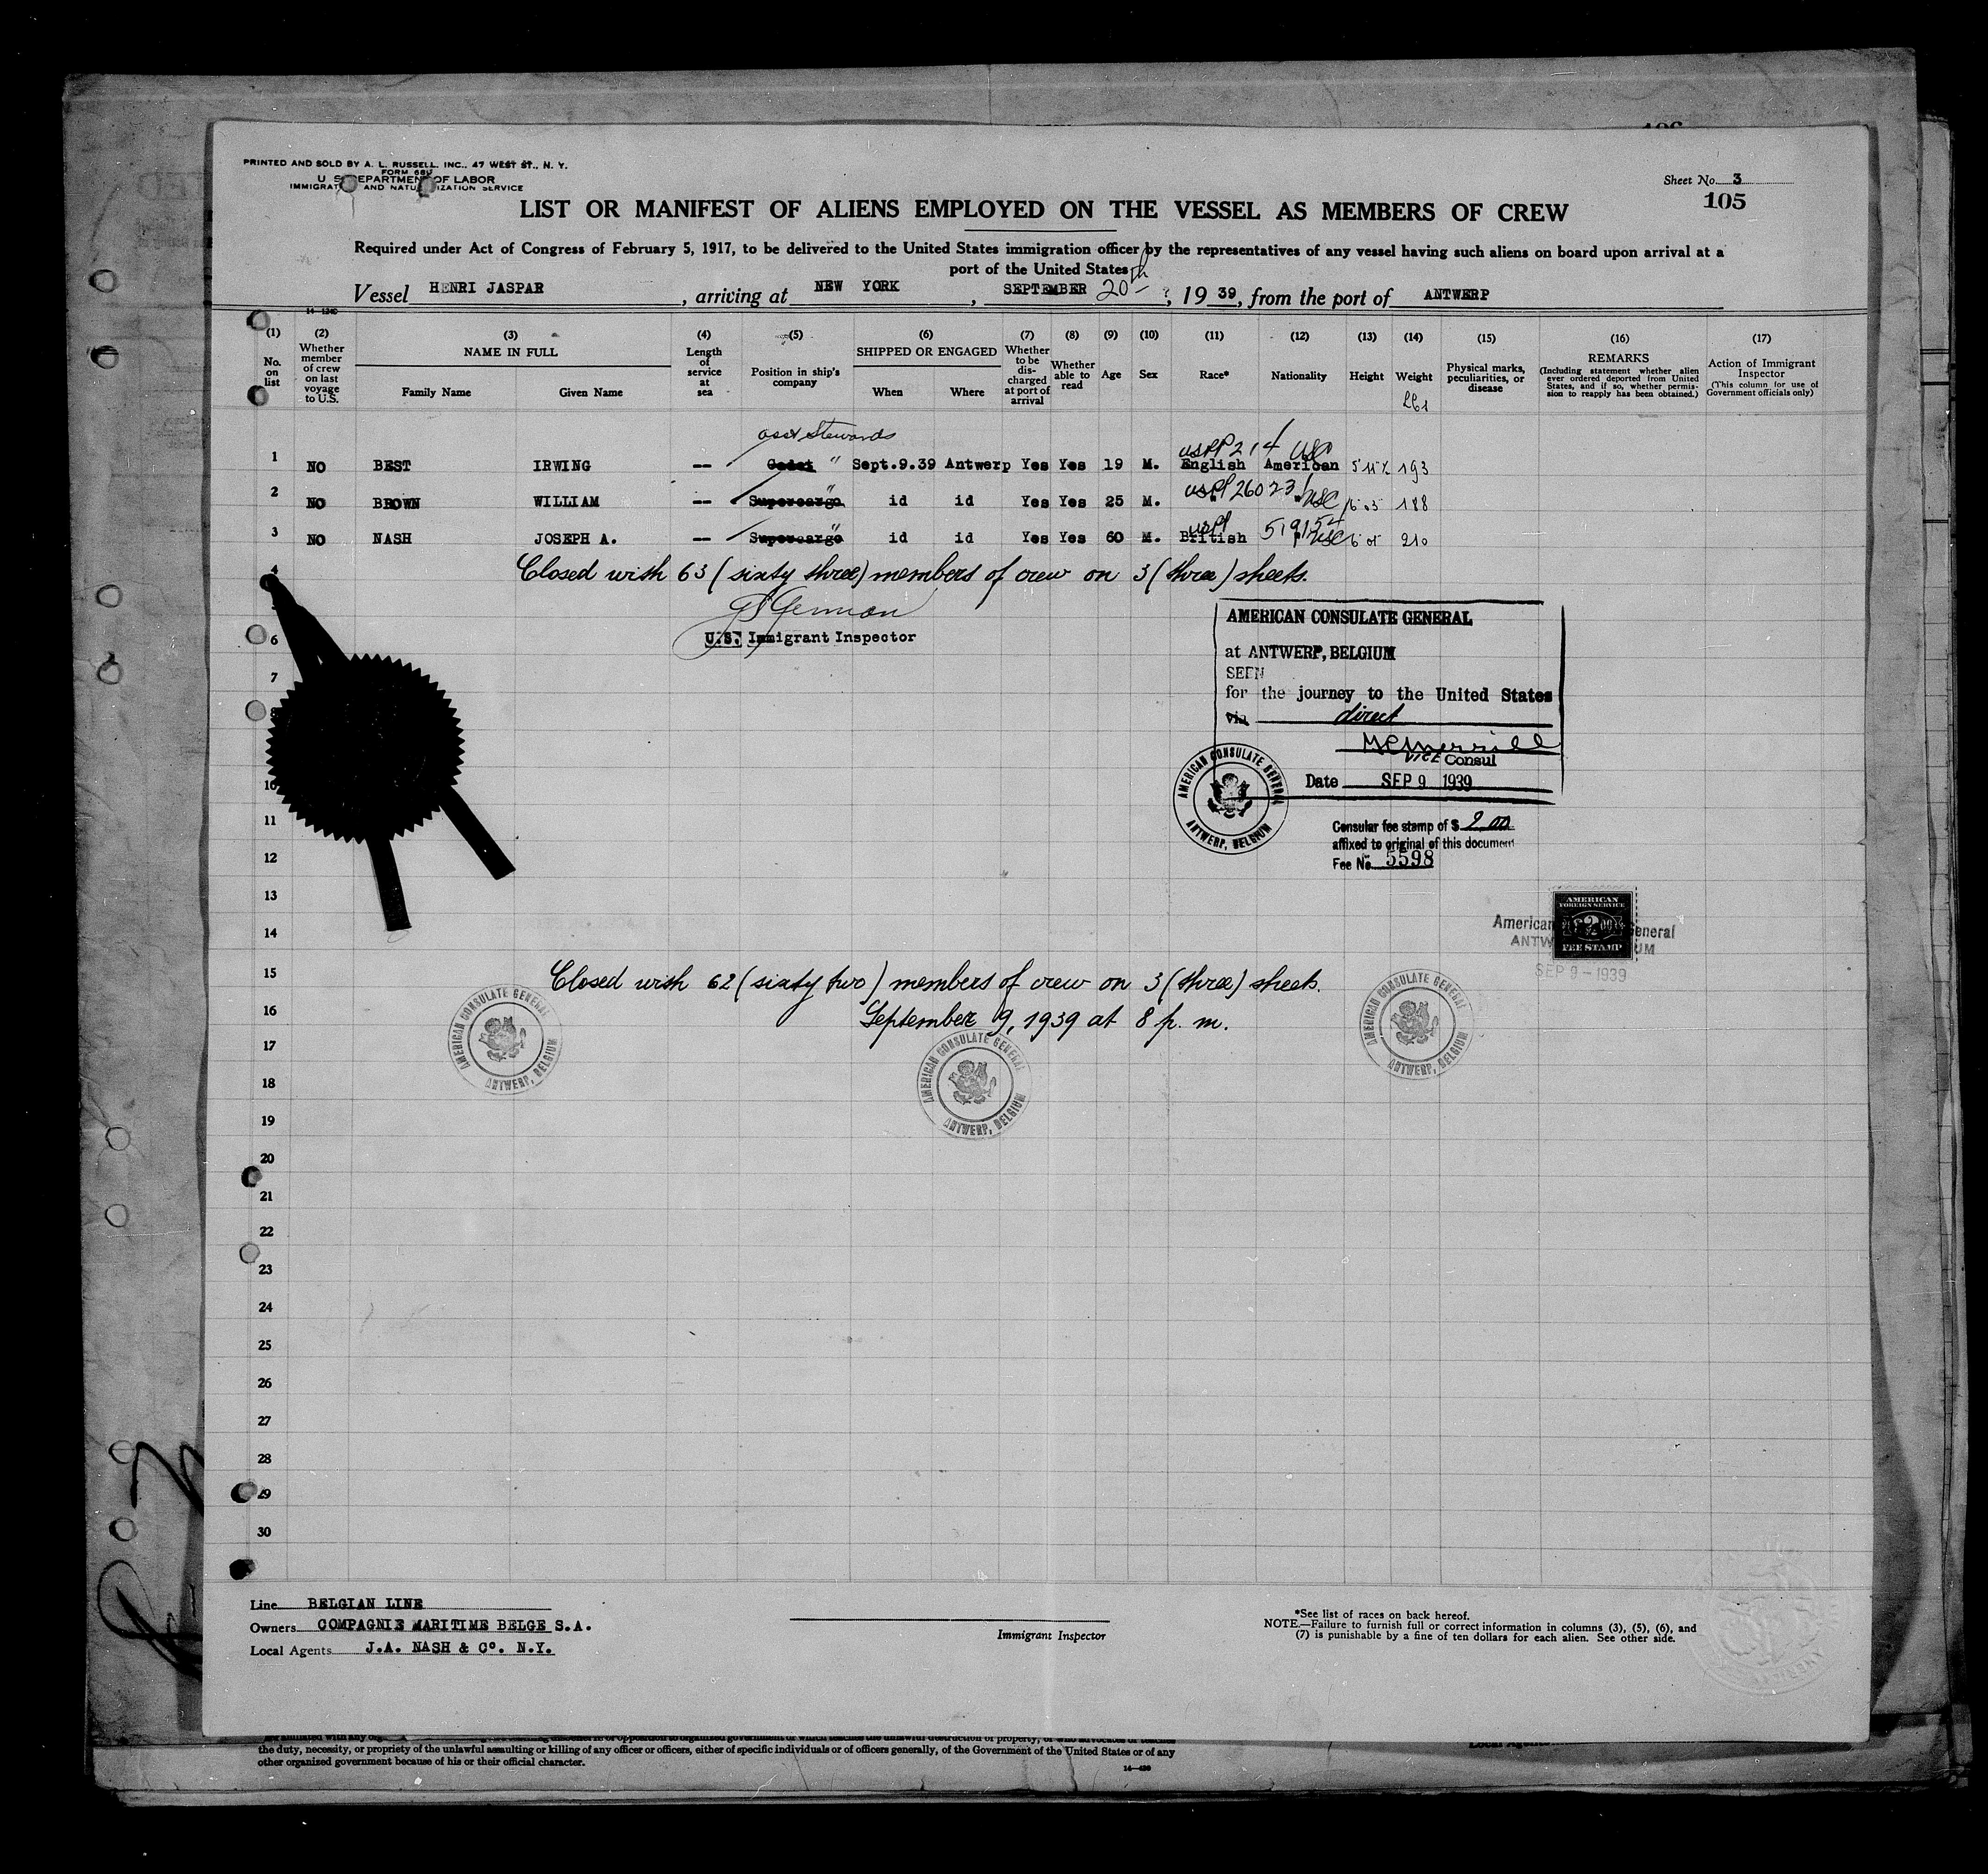 PRINTED AND SOLD BY A. L. RUSSELL. INC., 47 WEST ST., N. Y.
FORM 680
U. S. DEPARTMENT OF LABOR
IMMIGRATION AND NATURALIZATION SERVICE
Sheet No. 3
105
LIST OR MANIFEST OF ALIENS EMPLOYED ON THE VESSEL AS MEMBERS OF CREW
Required under Act of Congress of February 5, 1917, to be delivered to the United States immigration officer by the representatives of any vessel having such aliens on board upon arrival at a
port of the United States
Vessel HENRI JASPAR, arriving at NEW YORK, SEPTEMBER 20th, 1939, from the port of ANTWERP
(1) (2) (3) (4) (5) (6) (7) (8) (9) (10) (11) (12) (13) (14) (15) (16) (17)
No. on list
Whether member of crew on last voyage to U.S.
NAME IN FULL
Family Name
Given Name
Length of service at sea
Position in ship's company
SHIPPED OR ENGAGED
When
Where
Whether to be discharged at port of arrival
Whether able to read
Age
Sex
Race*
Nationality
Height
Weight
Physical marks, peculiarities, or disease
REMARKS
(Including statement whether alien ever ordered deported from United States, and if so, whether permission to reapply has been obtained.)
Action of Immigrant Inspector
(This column for use of Government officials only)
asst Stewards
1 NO BEST IRWING -- Cadet " Sept.9.39 Antwerp Yes Yes 19 M. English American 193
USPP 214 USC
2 NO BROWN WILLIAM -- Supercargo " id id Yes Yes 25 M. USC 188
3 NO NASH JOSEPH A. -- Supercargo " id id Yes Yes 60 M. British USC 210
4
Closed with 63 (sixty three) members of crew on 3 (three) sheets.
U.S. Immigrant Inspector
6
7
8
10
11
12
13
14
AMERICAN CONSULATE GENERAL
at ANTWERP, BELGIUM
SEEN
for the journey to the United States
via direct
VICE Consul
Date SEP 9 1939
AMERICAN CONSULATE GENERAL
ANTWERP, BELGIUM
Consular fee stamp of $ 2.00
affixed to original of this document
Fee No. 5598
AMERICAN
FOREIGN SERVICE
$2.00
FEE STAMP
American General
ANTW UM
SEP 9 - 1939
15 Closed with 62 (sixty two) members of crew on 3 (three) sheets.
16 September 9, 1939 at 8 p. m.
AMERICAN CONSULATE GENERAL
ANTWERP, BELGIUM
AMERICAN CONSULATE GENERAL
ANTWERP, BELGIUM
AMERICAN CONSULATE GENERAL
ANTWERP, BELGIUM
17
18
19
20
21
22
23
24
25
26
27
28
29
30
Line BELGIAN LINE
Owners COMPAGNIE MARITIME BELGE S.A.
Local Agents J.A. NASH & Co. N.Y.
Immigrant Inspector
*See list of races on back hereof.
NOTE.—Failure to furnish full or correct information in columns (3), (5), (6), and
(7) is punishable by a fine of ten dollars for each alien. See other side.
the duty, necessity, or propriety of the unlawful assaulting or killing of any officer or officers, either of specific individuals or of officers generally, of the Government of the United States or of any
other organized government because of his or their official character.